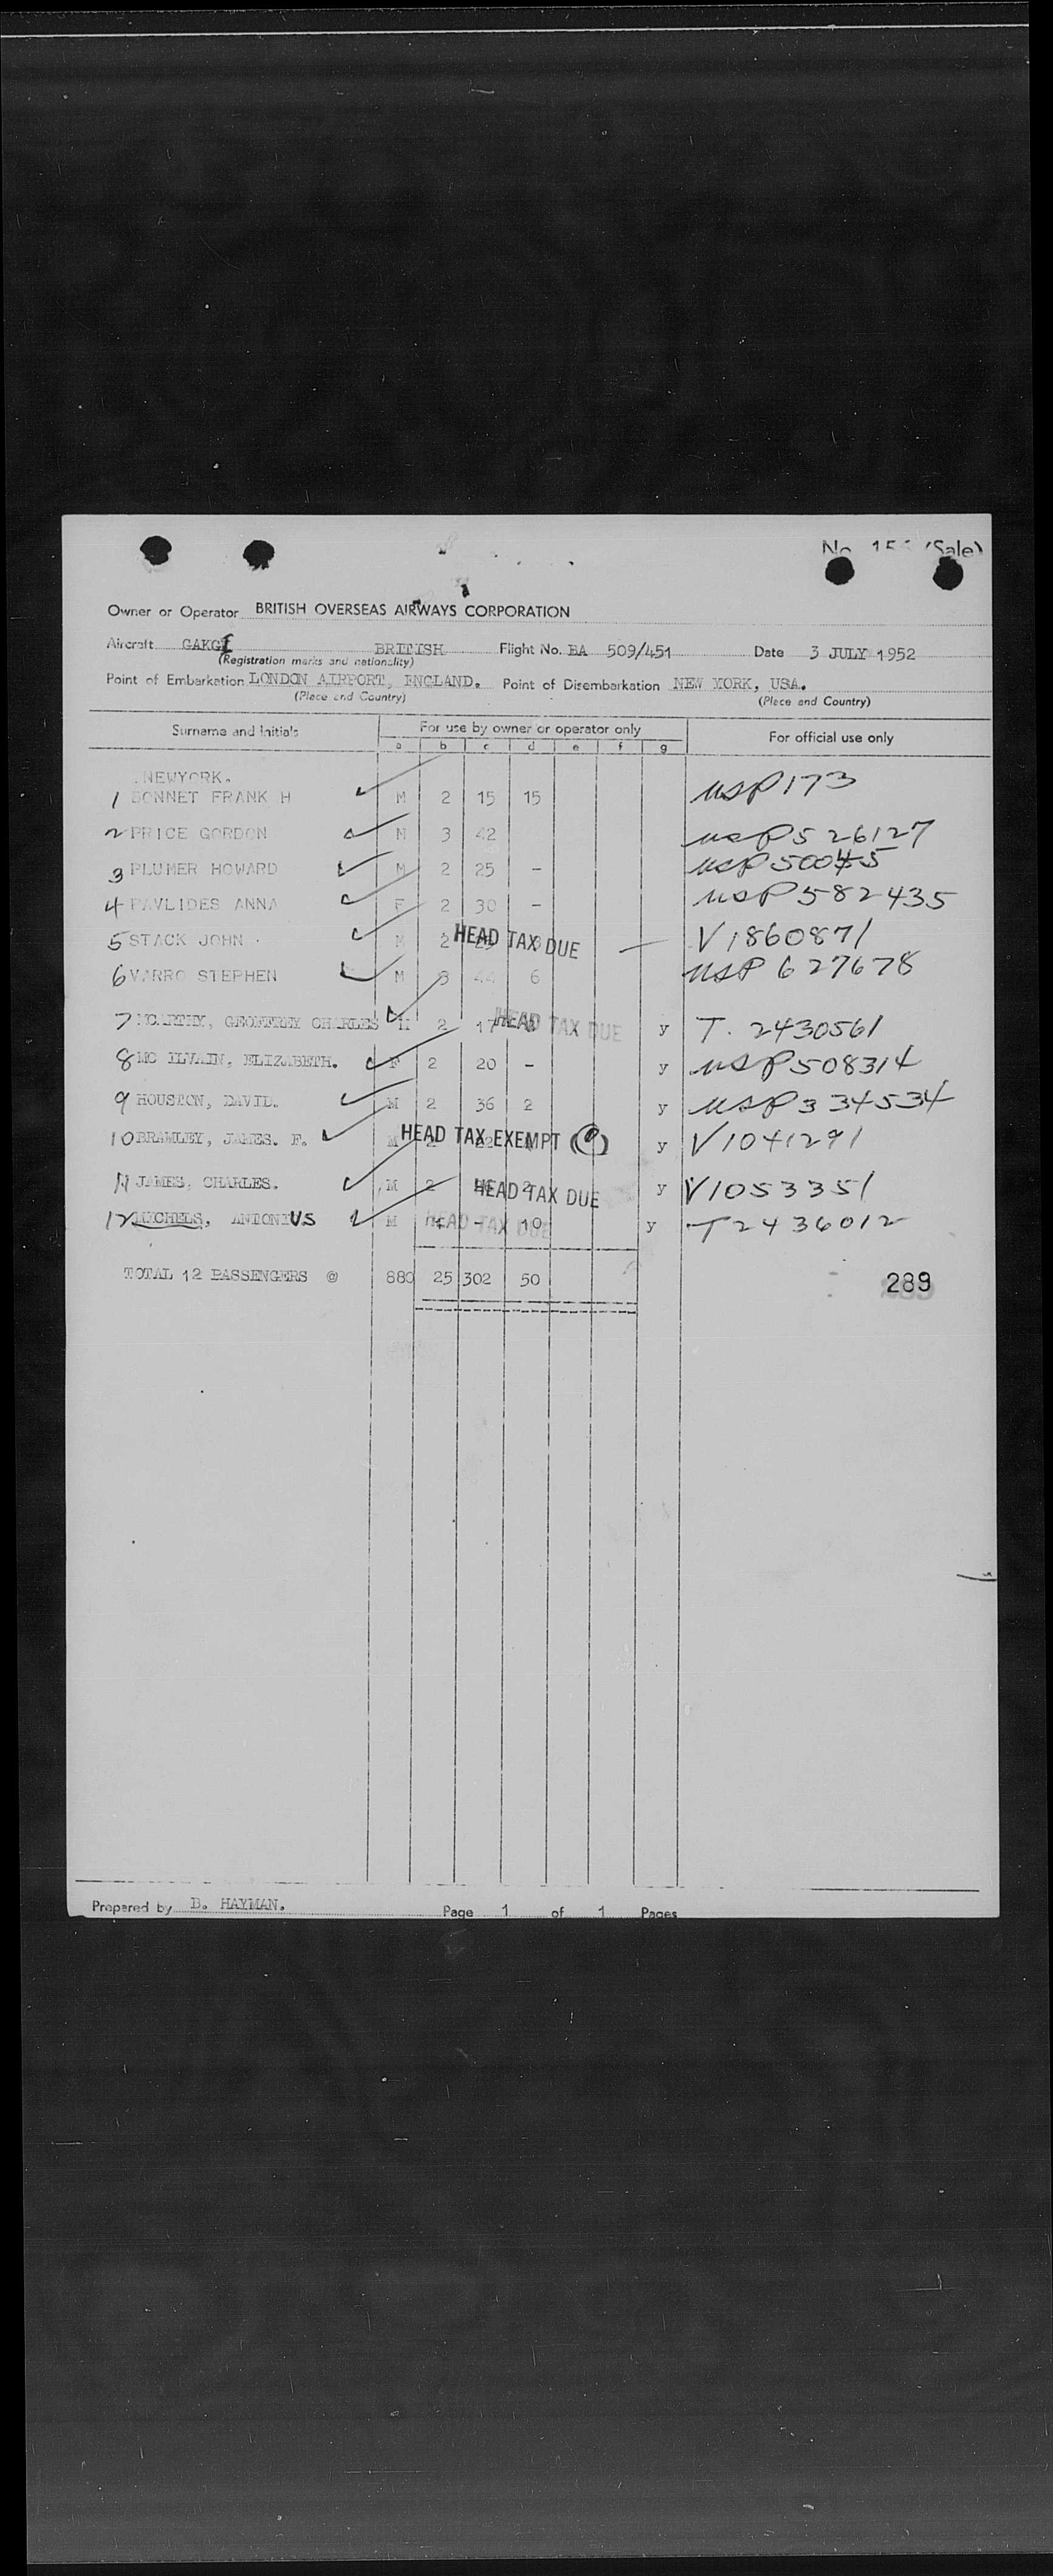 (Sale)
Owner or Operator BRITISH OVERSEAS AIRWAYS CORPORATION
Aircraft BRITISH Flight No. BA 509/451 Date 3 JULY 1952
(Registration marks and nationality)
Point of Embarkation LONDON AIRPORT, ENGLAND. Point of Disembarkation NEW YORK, USA.
(Place and Country) (Place and Country)
Surname and Initials For use by owner or operator only For official use only
a b c d e f g
NEWYORK.
1 BONNET FRANK H M 2 15 15 USP 173
2 PRICE GORDON M 3 42 USP 526127
3 PLUMER HOWARD M 2 25 - USP 50045
4 PAVLIDES ANNA F 2 30 - USP 582435
5 STACK JOHN M 2 HEAD TAX DUE — V 1860871
6 VARRO STEPHEN M 3 44 6 USP 627678
7 MCARTHY, GEOFFREY CHARLES M 2 17 HEAD TAX DUE y T. 2430561
8 MC ILVAIN, ELIZABETH. F 2 20 - y USP 508314
9 HOUSTON, DAVID. M 2 36 2 y USP 334534
10 BRAMLEY, JAMES. F. M HEAD TAX EXEMPT y V1041291
11 JAMES, CHARLES. M 2 HEAD TAX DUE y V1053351
12 MICHELS, ANTONIUS M - 10 HEAD TAX DUE y T2436012
TOTAL 12 PASSENGERS @ 880 25 302 50 289
Prepared by B. HAYMAN. Page 1 of 1 Pages